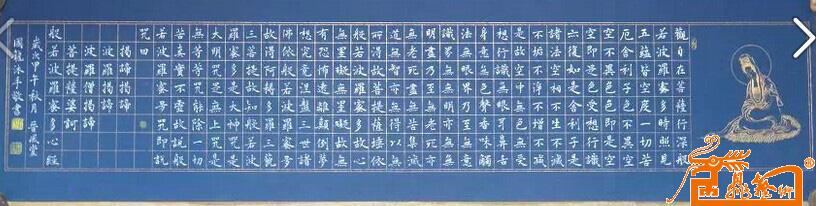 觀自在菩薩行深般
若波羅蜜多時照見
五蘊皆空度一切苦
厄舍利子色不異空
空不異色色即是空
空即是色受想行識
亦復如是舍利子是
諸法空相不生不滅
不垢不淨不增不減
是故空中無色無受
想行識無眼耳鼻舌
身意無色聲香味觸
法無眼界乃至無意
識界無無明亦無無
明盡乃至無老死亦
無老死盡無苦集滅
道無智亦無得以無
所得故菩提薩埵依
般若波羅蜜多故心
無罣礙無罣礙故無
有恐怖遠離顛倒夢
想究竟涅槃三世諸
佛依般若波羅蜜多
故得阿耨多羅三藐
三菩提故知般若波
羅蜜多是大神咒是
大明咒是無上咒是
無等等咒能除一切
苦真實不虛故說般
若波羅蜜多咒即說
咒曰
揭諦揭諦
波羅揭諦
波羅僧揭諦
菩提薩婆訶
般若波羅蜜多心經
歲次甲午秋月
國龍沐手敬書